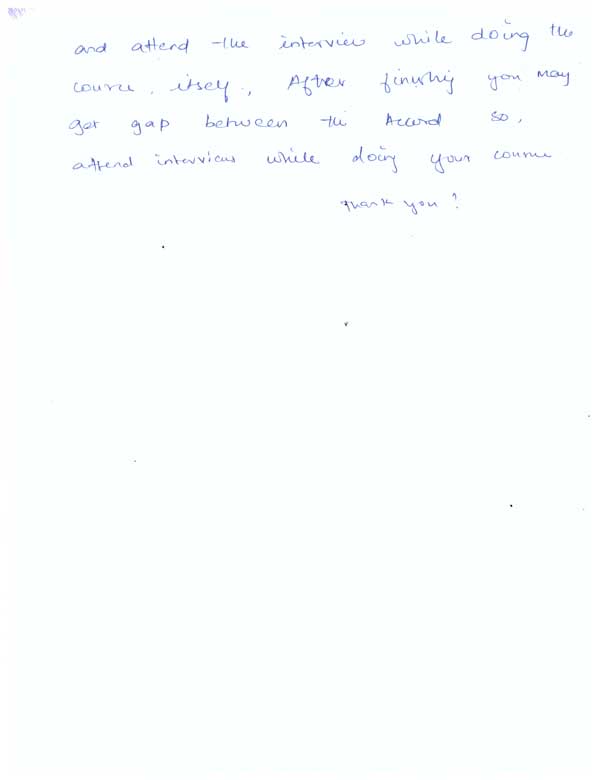 and attend the interview while doing the
course, itself, After finishig you may
get gap between the Accord so,
attend interview while doing your course
thank you!